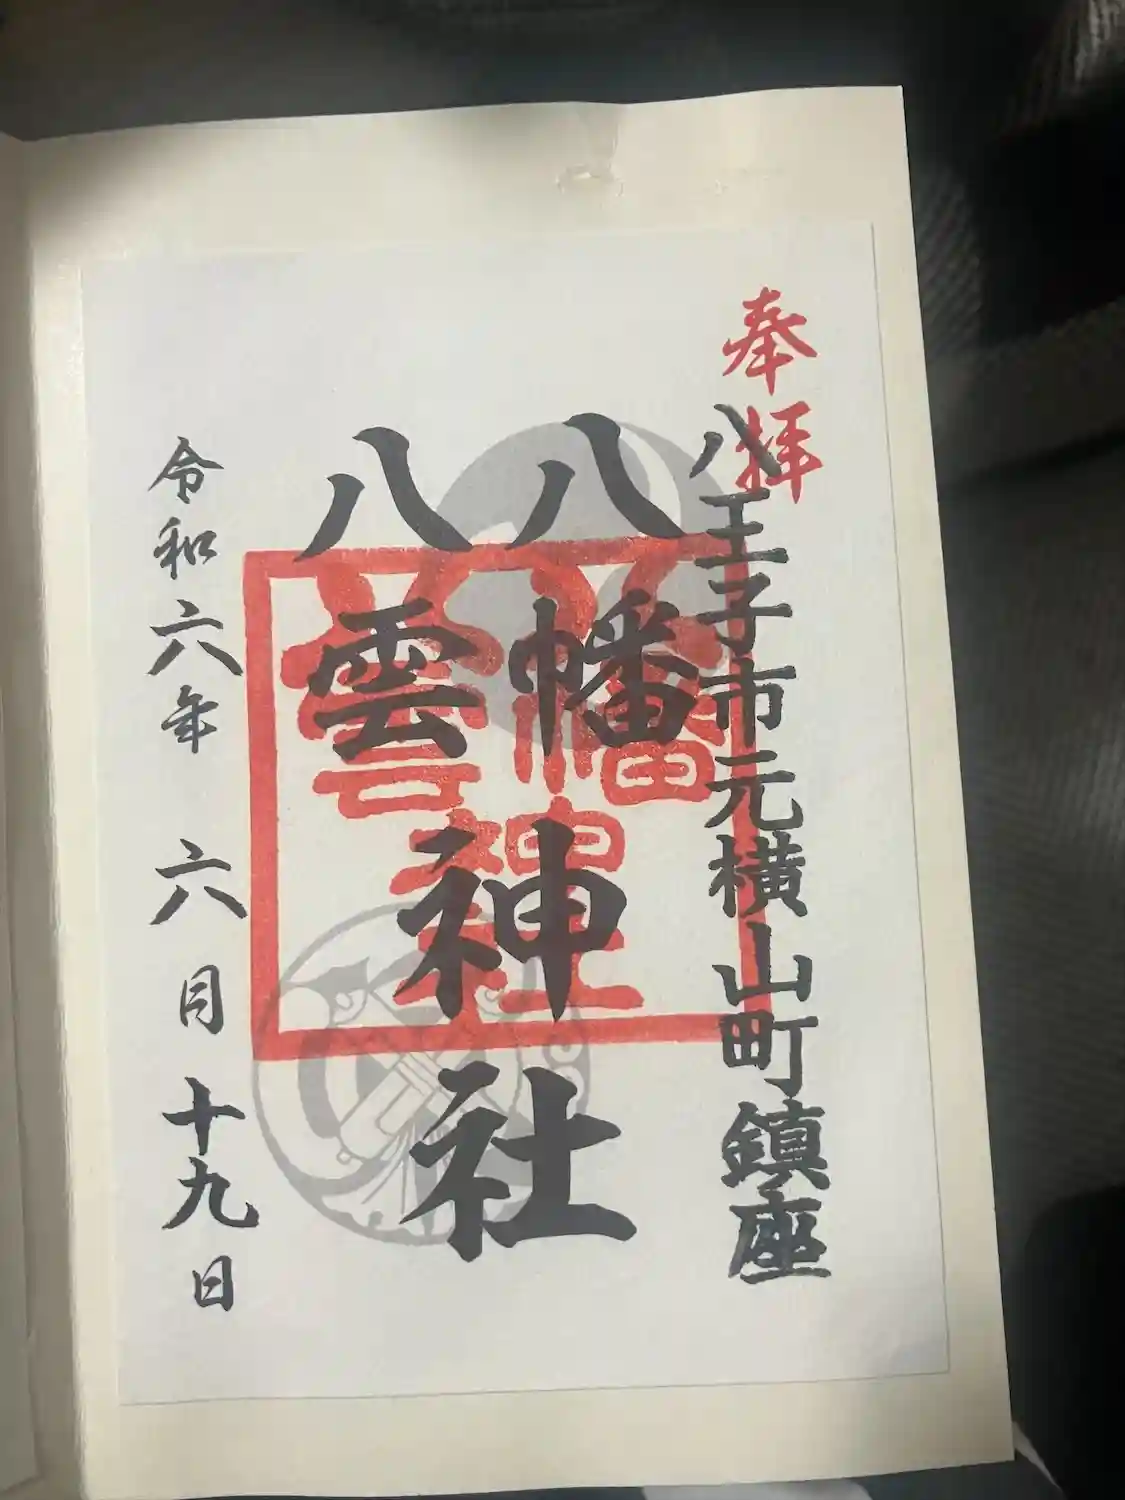 奉拝
八王子市元横山町鎮座
八幡
八雲
神社
八幡
八雲
神社
令和六年 六月十九日